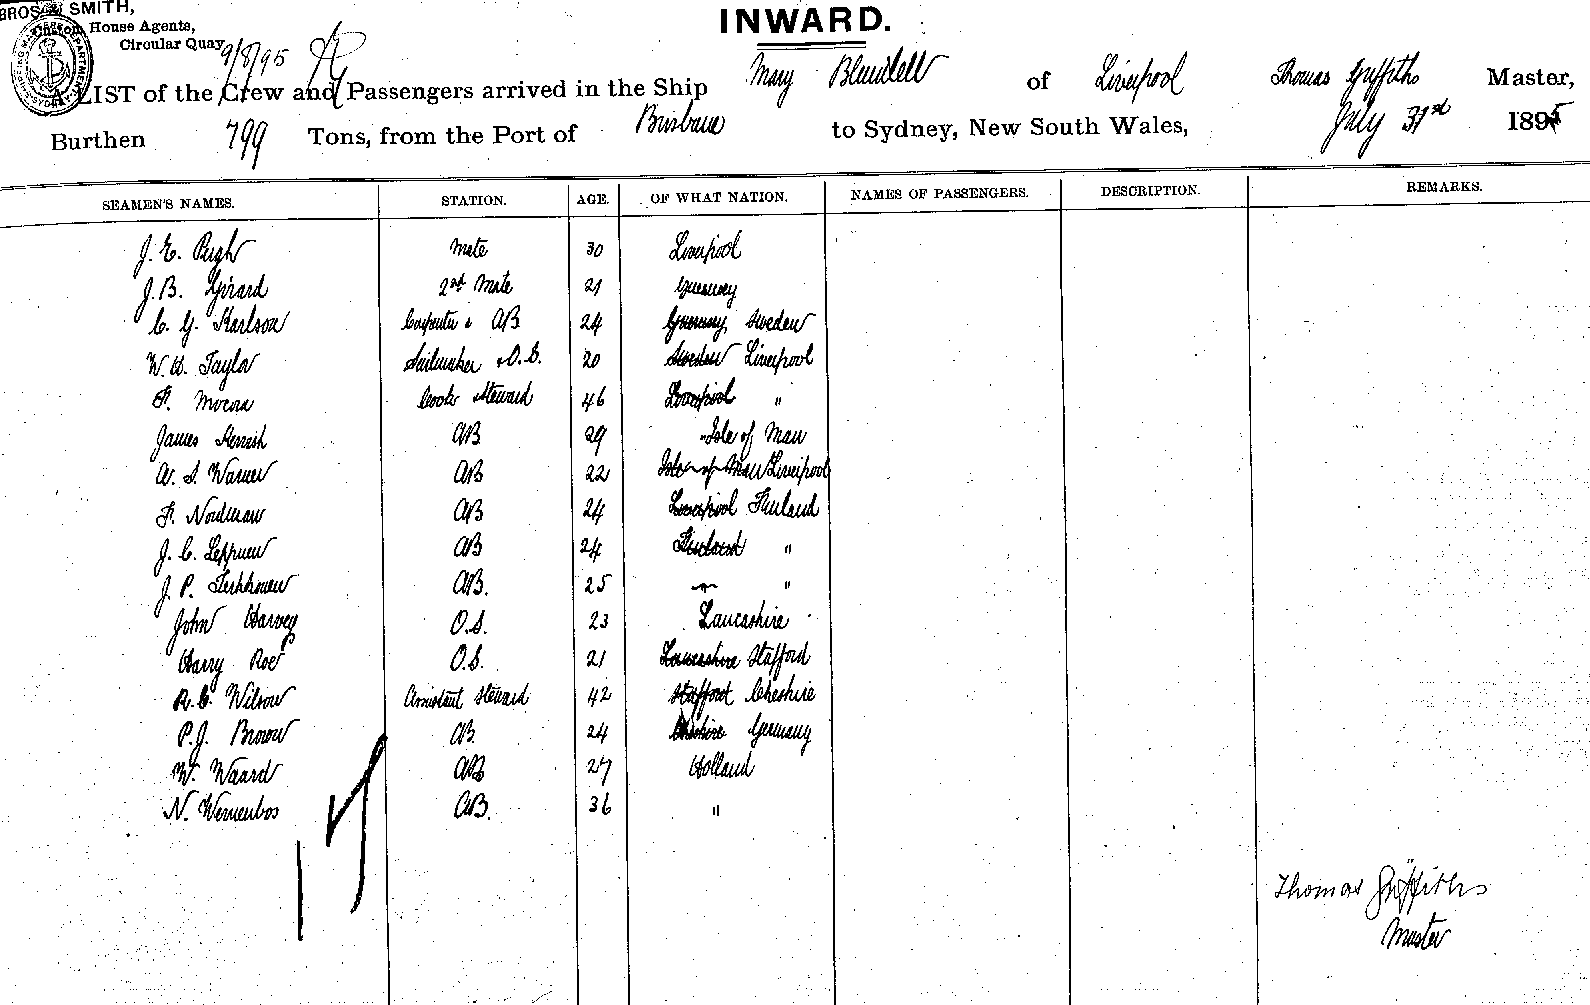 BROS & SMITH,
Custom House Agents,
Circular Quay
INWARD.
9/8/95
A LIST of the Crew and Passengers arrived in the Ship Mary Blundell of Liverpool Thomas Griffiths Master,
Burthen 799 Tons, from the Port of Brisbane to Sydney, New South Wales, July 31st 1895
SEAMEN'S NAMES. STATION. AGE. OF WHAT NATION. NAMES OF PASSENGERS. DESCRIPTION. REMARKS.
J. E. Pugh Mate 30 Liverpool
J. B. Girard 2nd Mate 21 Guernsey
C. G. Karlson Carpenter & AB 24 Guernsey Sweden
W. H. Taylor Sailmaker & O.S. 20 Sweden Liverpool
F. Cook Steward 46 Liverpool "
James AB 29 " Isle of Man
W. S. Warner AB 22 Isle of Man Liverpool
F. Nordman AB 24 Liverpool Finland
J. C. AB 24 Finland "
J. P. AB. 25 " "
John Harvey O.S. 23 Lancashire
Harry Roe O.S. 21 Lancashire Stafford
R. C. Wilson Assistant Steward 42 Stafford Cheshire
P. J. Brown AB 24 Cheshire Germany
W. Waard AB 27 Holland
N. Wemenbos AB. 36 "
17
Thomas Griffiths
Master